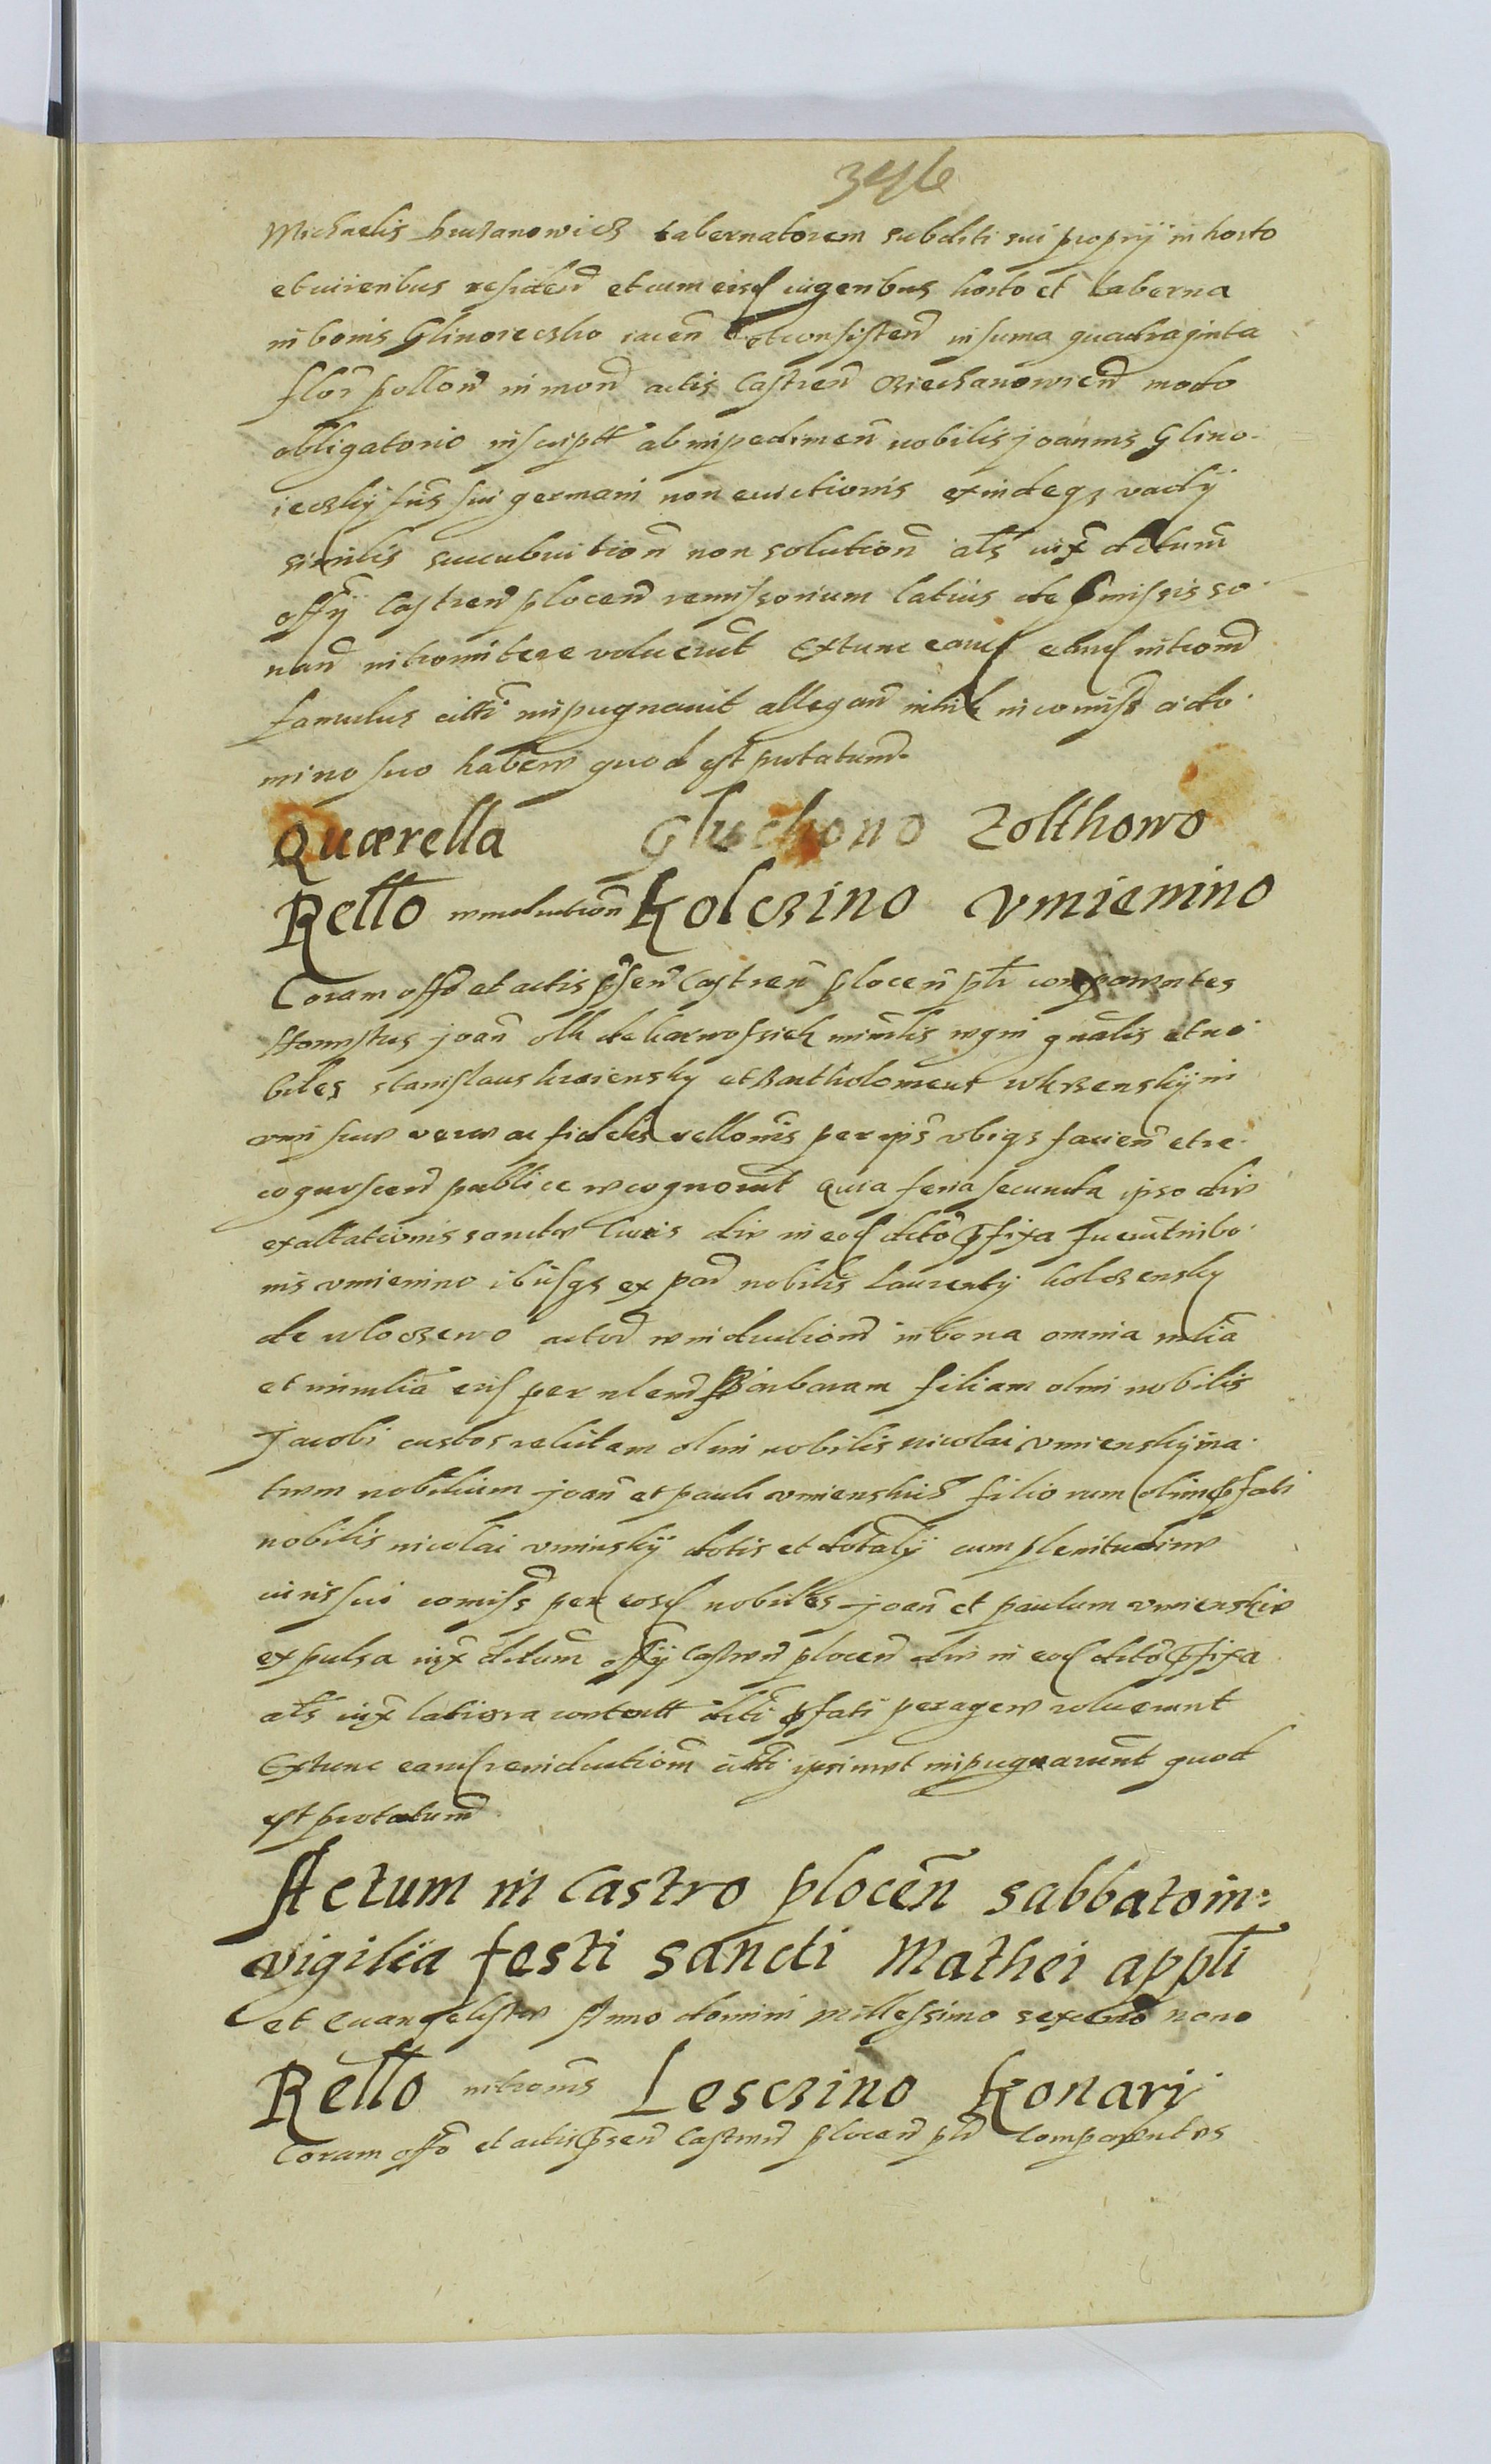 346
Michaelis bruzanowicz tabernatorem subditi sui proprij in horto
et iugeribus residen̄ et cum eisd iugeribus horto et taberna
in bonis Glinoieczko iacen̄ et consisten̄ in suma quadraginta
flor̄ pollon̄ in mon̄ actis Castren̄ Cziechanowien̄ modo
obligatorio inscriptt ab impedimen̄ nobilis joannis Glino-
ieczkij fr̄is sui germani non euictionis exindeqz vadij
similis succubuition̄ non solution̄ als iux̄ dētum̄
offij Castren̄ plocen̄ remissorium latius de p̄missis so-
nan̄ intromittere voluerūt Extunc eand eand introm̄
famulus citti impugnauit allegan̄ nihil in comiss̄ a do-
mino suo habere quod est protatum̄
Quærella Gluchowo Zolthowo
Rello reinduction̄ Kolczino Vmienino
Coram offo et actis p̄sen̄ Castren̄ plocen̄ plr comparentes
Honestus joan̄ olk de karwosiek mīnlis regni gn̄alis et no-
biles stanislaus krzeiensky et Bartholomeus wkrzenskij in
vim sue vere ac fidelis rellonis per ip̄s vbiqz facien̄ et re-
cognoscen̄ publice recognoūt Quia feria secunda ipso die
exaltationis sanctæ Crucis die in eod dēto p̄fixa fuerūt in bo-
nis vmienino ibiqz ex par̄ nobilis Laurentij kolczensky
de wloczewo actor̄ reinduction̄ in bona omnia mblia
et immblia eiusd per nlem Barbaram filiam olim nobilis
Jacobi custos relictam olim nobilis nicolai vmienskij ma-
trem nobilium joan̄ et pauli vmienskich filiorum olim p̄fati
nobilis nicolai vmienskij dotis et dotalij cum plenitudine
iuris sui comiss̄ per eosd nobiles joan̄ et paulum vmienskie
expulsa iux̄ dētum̄ offij Castren̄ plocen̄ die in eod dēto p̄fixa
als iux̄ latiora contentt dēti p̄fati peragere voluerunt
Extunc eand reinduction̄ citti ipsimet impugnarunt quod
est protatum̄
Actum in Castro plocen̄ sabbato in
vigilia festi sancti Mathei appli
et Euangelistæ Anno domini millessimo sexcen̄o nono
Rello introm̄s Lesczino Konarij
Coram offo et actis p̄sen̄ Castren̄ plocen̄ plr Comparentes